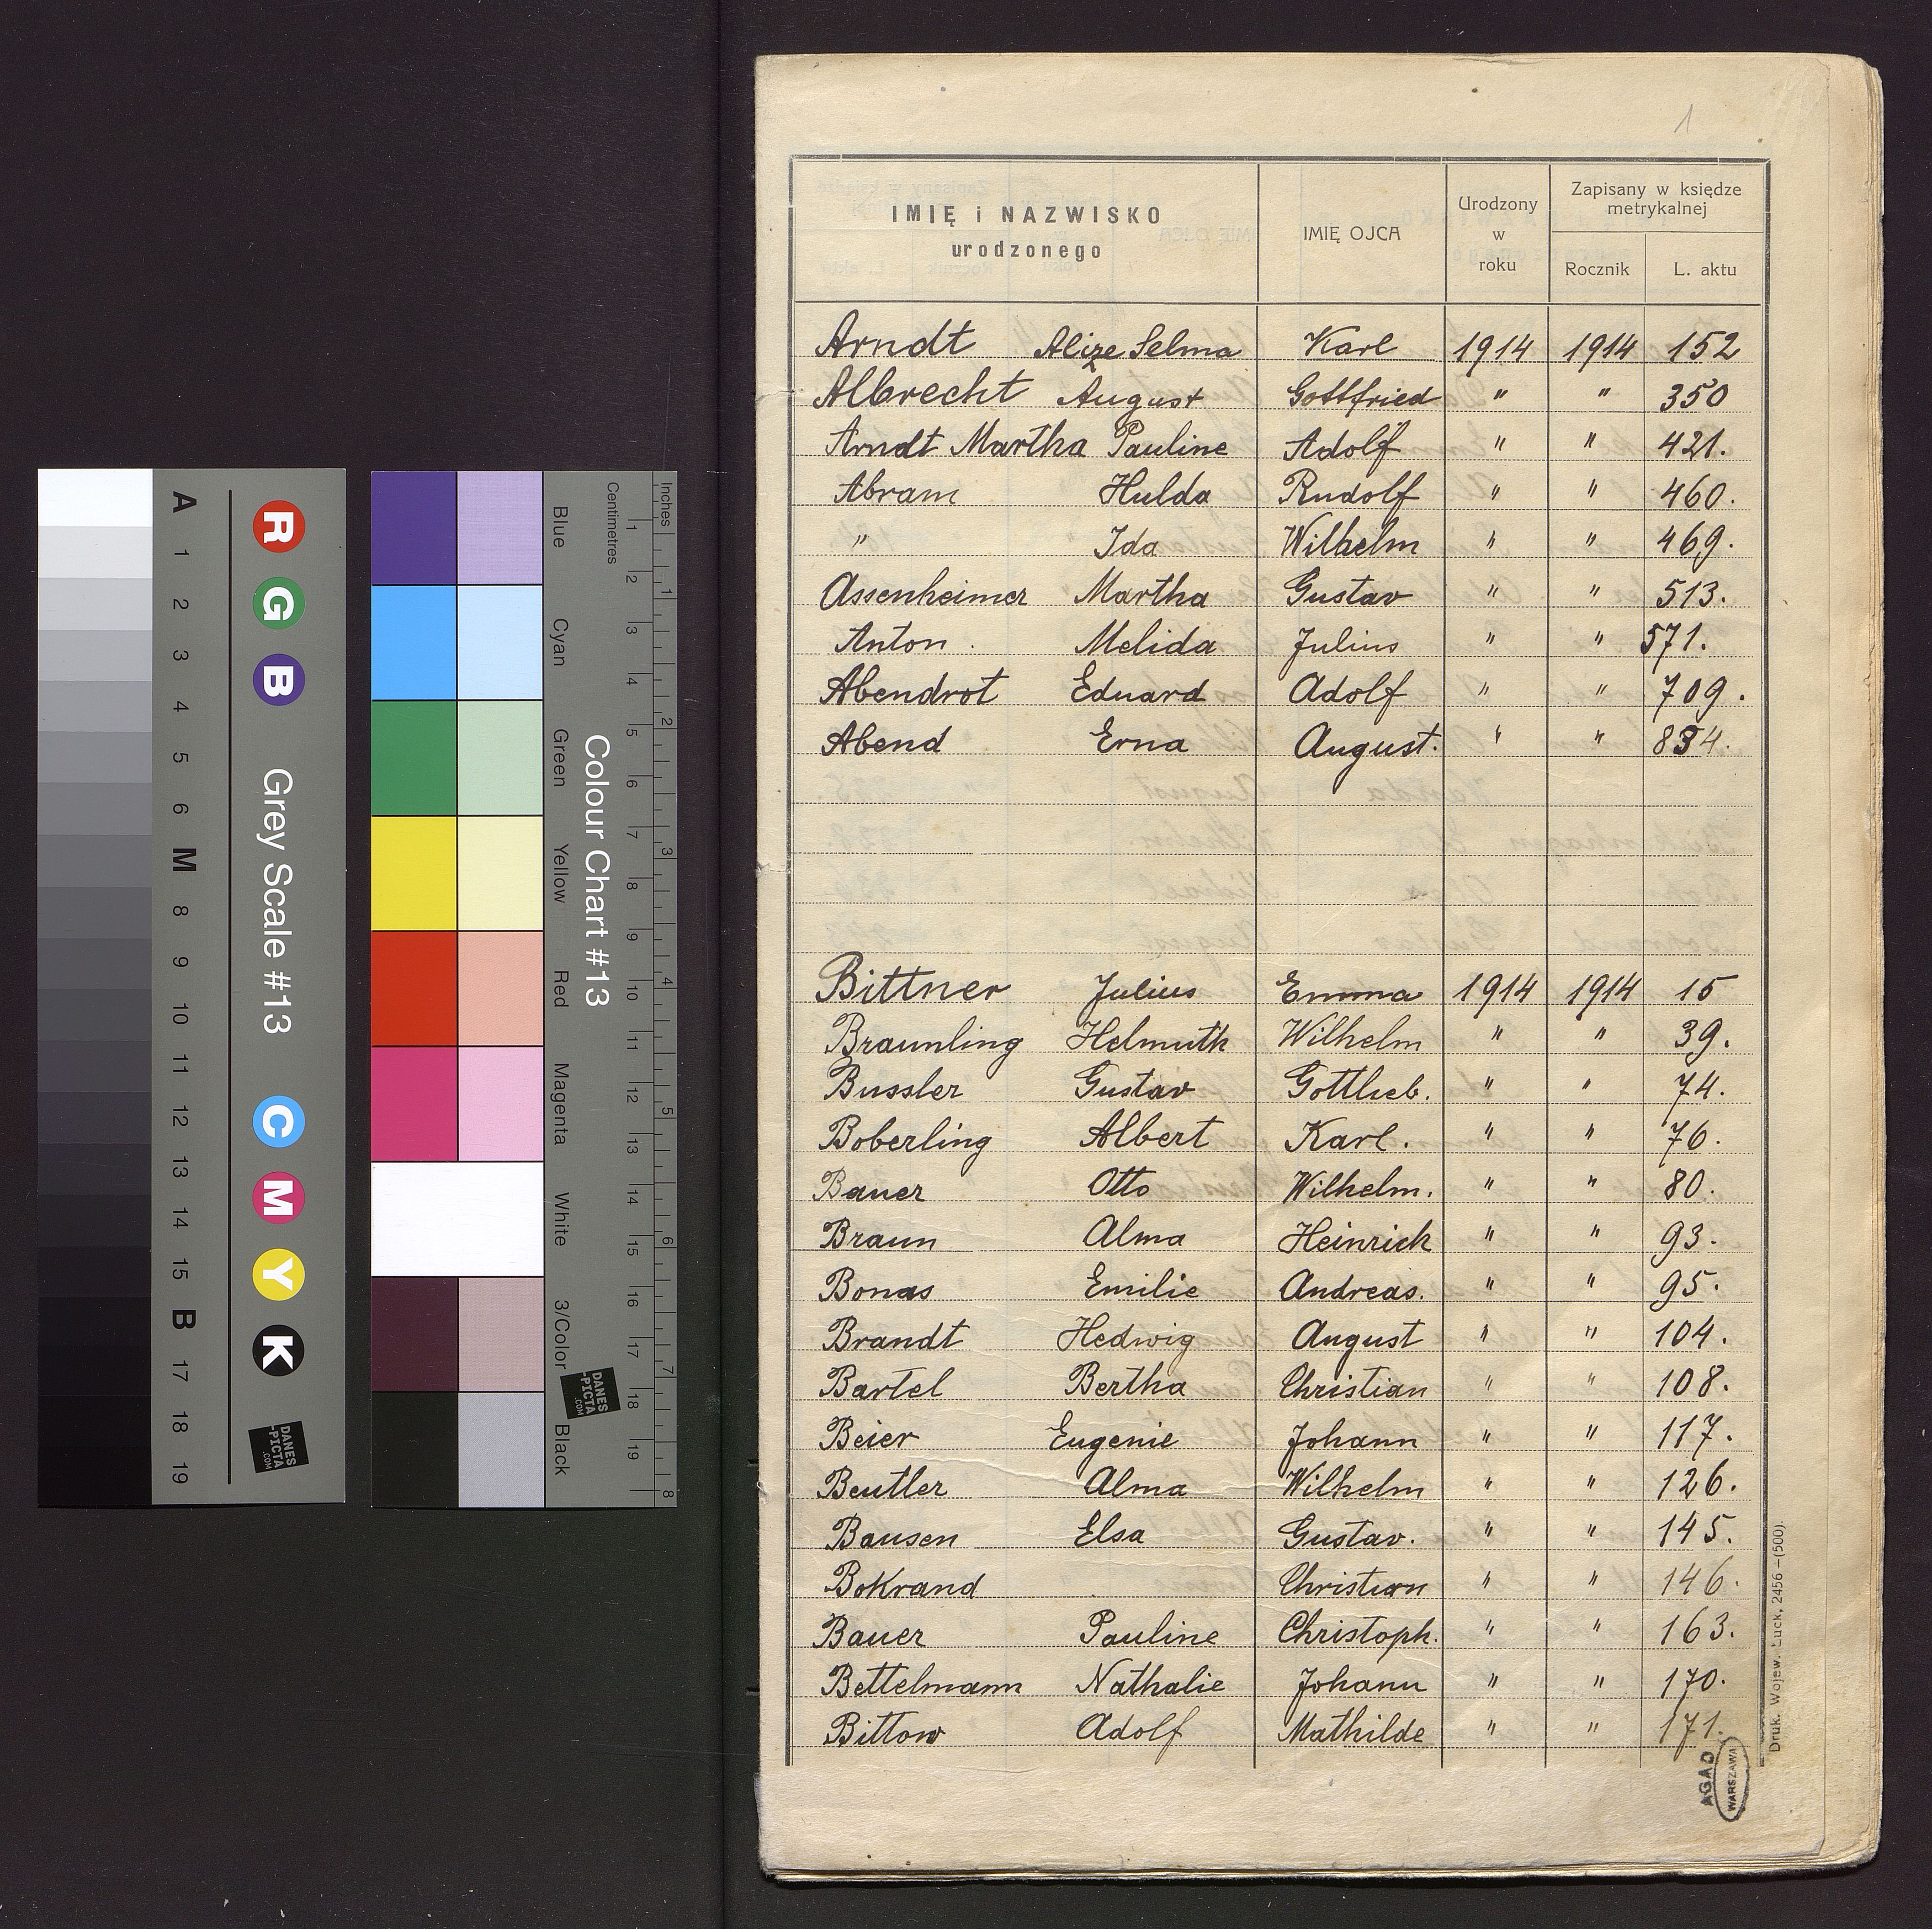 1
IMIĘ i NAZWISKO urodzonego IMIĘ OJCA Urodzony w roku Zapisany w księdze metrykalnej Rocznik L. aktu
Arndt Alize Selma Karl 1914 1914 152
Albrecht August Gottfried " " 350
Arndt Martha Pauline Adolf " " 421.
Abram Hulda Rudolf " " 460.
" Ida Wilhelm " " 469.
Assenheimer Martha Gustav " " 513.
Anton Melida Julius " " 571.
Abendrot Eduard Adolf " " 709.
Abend Erna August. " " 834.
Bittner Julius Emma 1914 1914 15
Braunling Helmuth Wilhelm " " 39.
Bussler Gustav Gottlieb. " " 74.
Boberling Albert Karl. " " 76.
Bauer Otto Wilhelm. " " 80.
Braun Alma Heinrich " " 93.
Bonas Emilie Andreas. " " 95.
Brandt Hedwig August " " 104.
Bartel Bertha Christian " " 108.
Beier Eugenie Johann " " 117.
Beutler Alma Wilhelm " " 126.
Bausen Elsa Gustav. " " 145.
Bokrand Christian " " 146.
Bauer Pauline Christoph. " " 163.
Bettelmann Nathalie Johann " " 170.
Bittow Adolf Mathilde " " 171.
Druk. Wojew. Łuck, 2456 - (500).
AGAD
WARSZAWA
A 1 2 3 4 5 6 M 8 9 10 11 12 13 14 15 B 17 18 19
R G B Grey Scale #13 C M Y K
DANES
-PICTA
.COM
Colour Chart #13
Blue Cyan Green Yellow Red Magenta White 3/Color Black
DANES
-PICTA
.COM
Centimetres 1 2 3 4 5 6 7 8 9 10 11 12 13 14 15 16 17 18 19
Inches 1 2 3 4 5 6 7 8